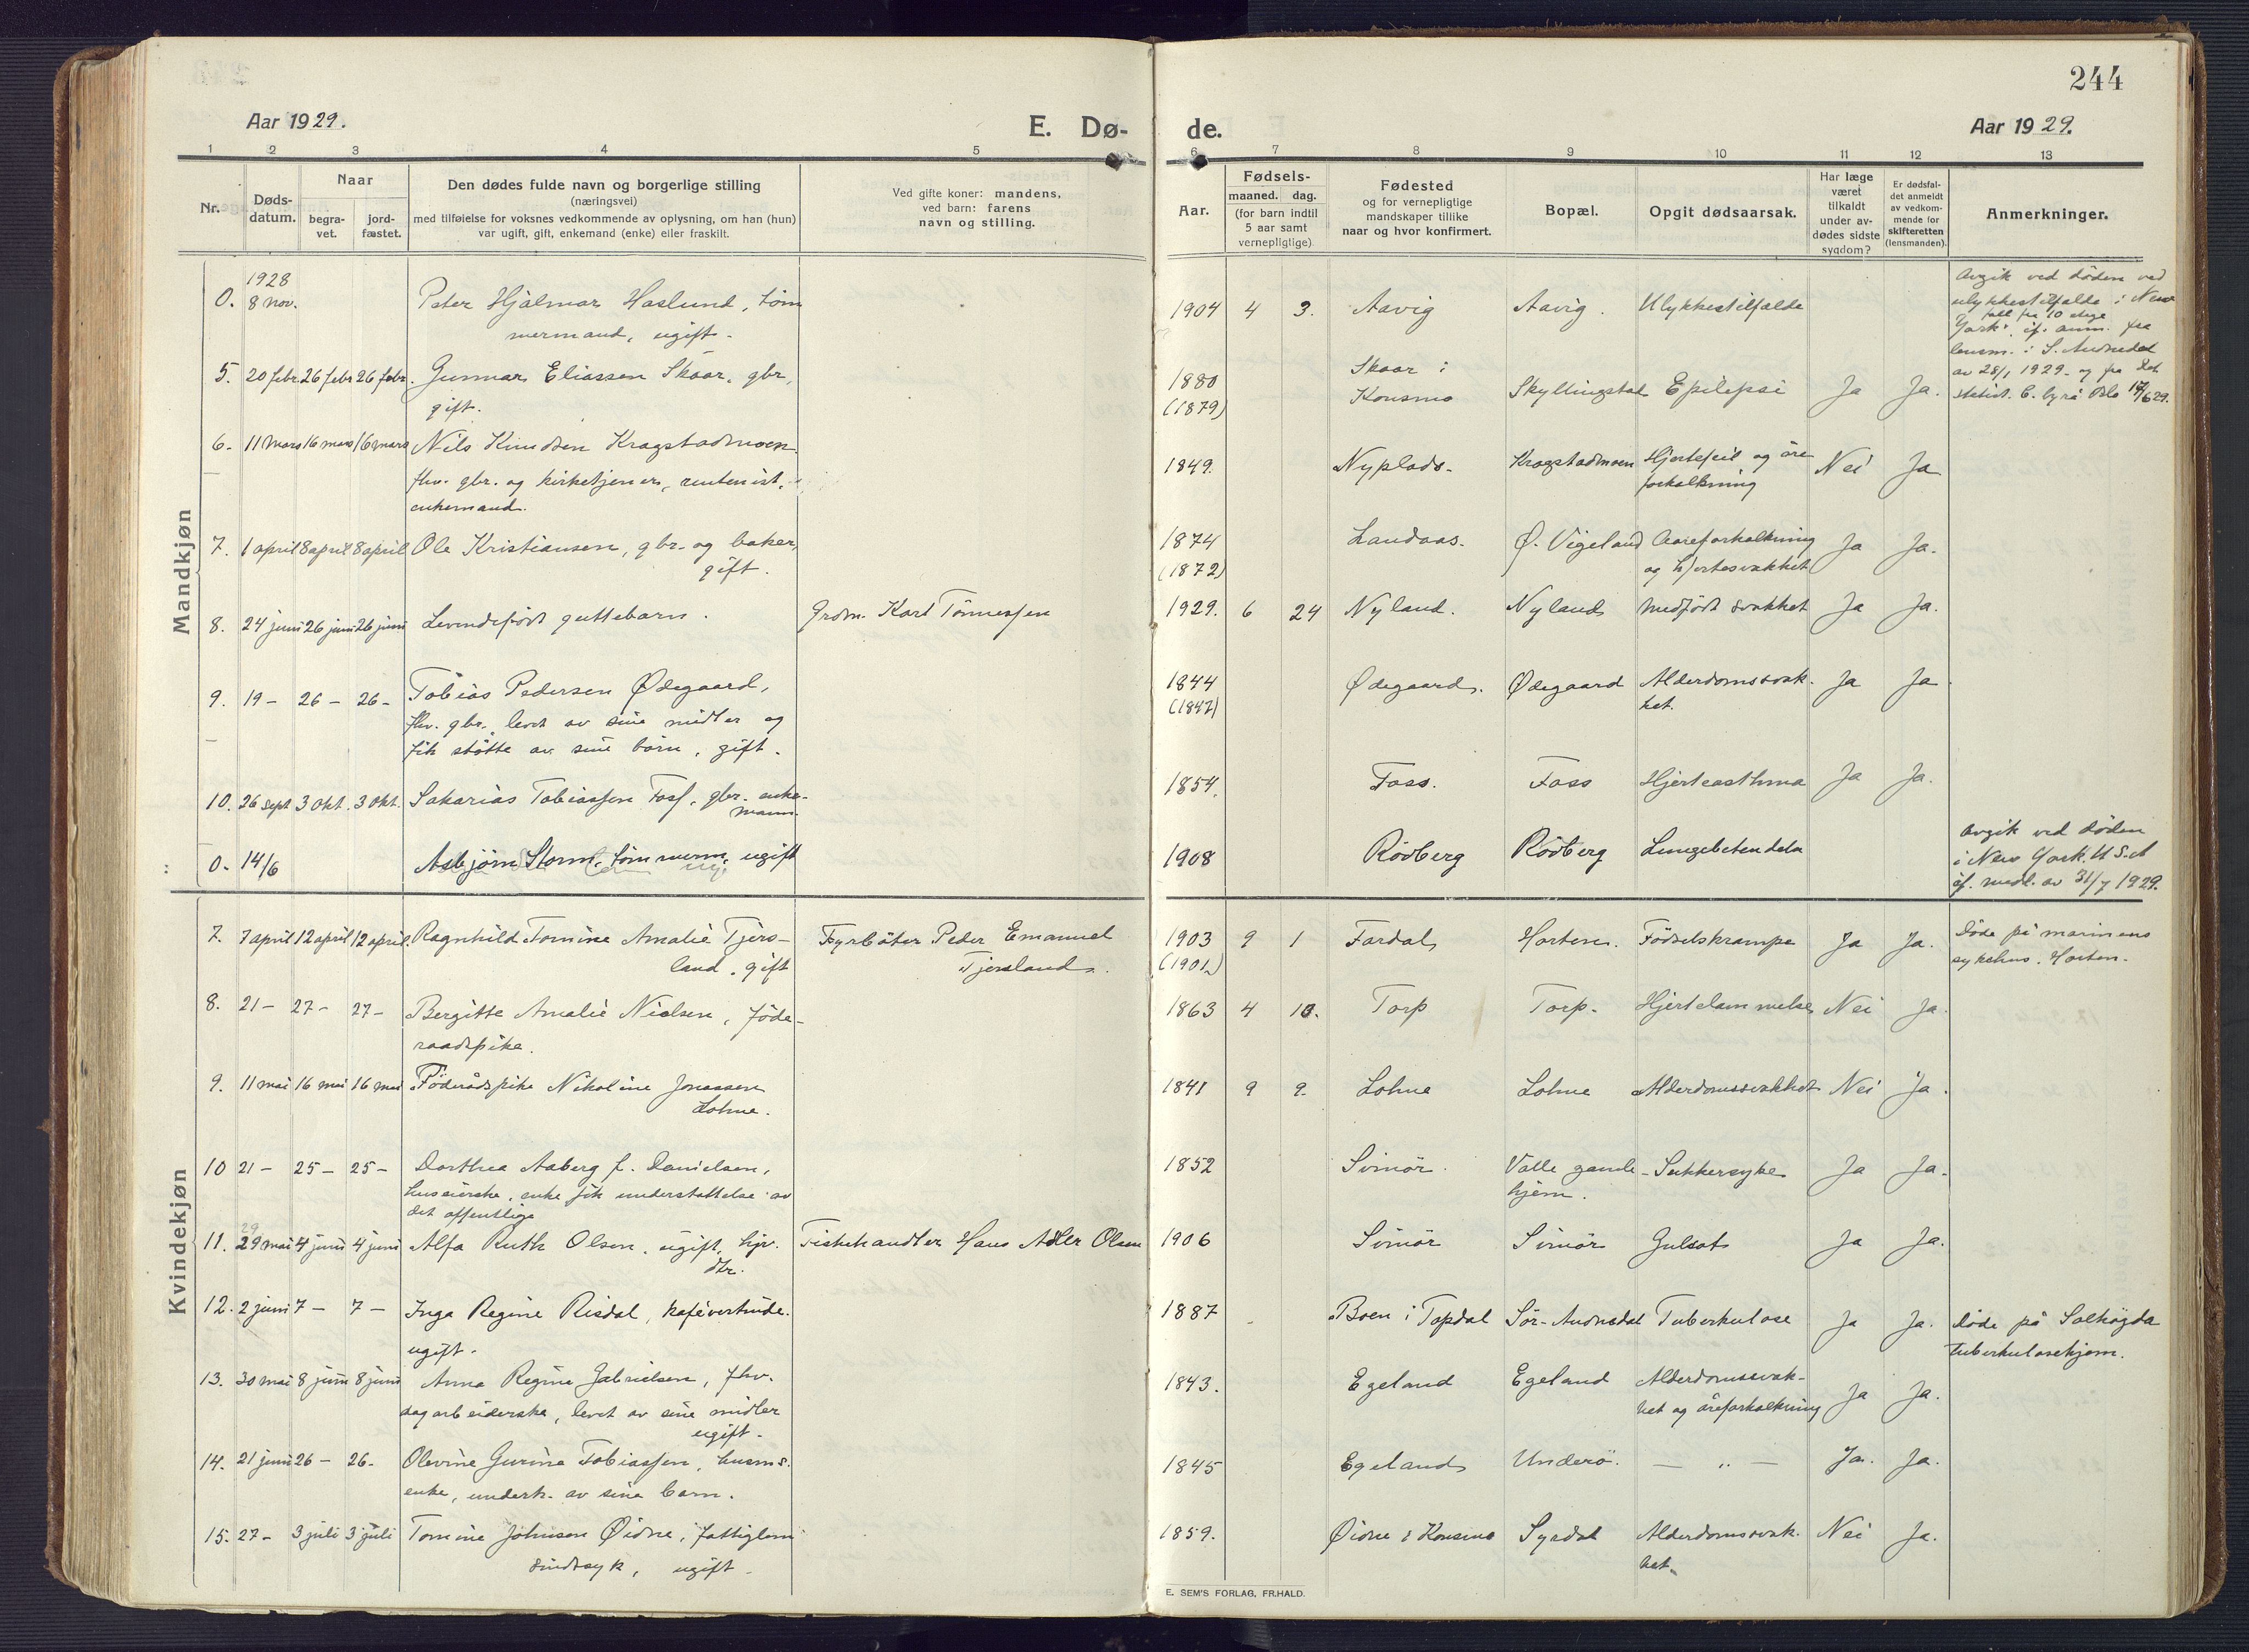 244
Aar 1929.
E. Dø-
de.
Aar 1929.
1 2 3 4 5 6 7 8 9 10 11 12 13
Nr.
Døds-
datum.
Naar
begra-
vet.
jord-
fæstet.
Den dødes fulde navn og borgerlige stilling
(næringsvei)
med tilføielse for voksnes vedkommende av oplysning, om han (hun)
var ugift, gift, enkemand (enke) eller fraskilt.
Ved gifte koner: mandens,
ved barn: farens
navn og stilling.
Aar.
Fødsels-
maaned. dag.
(for barn indtil
5 aar samt
vernepligtige)
Fødested
og for vernepligtige
mandskaper tillike
naar og hvor konfirmert.
Bopæl.
Opgit dødsaarsak.
Har læge
været
tilkaldt
under av-
dødes sidste
sygdom?
Er dødsfal-
det anmeldt
av vedkom-
mende for
skifteretten
(lensmanden).
Anmerkninger.
Mandkjøn
1928
0. 8 nov. Peter Hjalmar Haslund, töm
mermand, ugift. 1904 4 3. Aavig Aavig. Ulykkestilfælde
Avgik ved döden ved
ulykkestilfælde i New
fall fra 10 etage
York, if. anm. fra
lensm. i S. Audnedal
av 28/1 1929 og fra Det
statist. C. byrå Oslo 17/6 29.
5. 20 febr. 26 febr 26 febr. Gunnar Eliassen Skoar, gbr,
gift. 1880
(1879) Skaar i
Konsmo Skyllingstal Epilepsi Ja Ja.
6. 11 mars 16 mars 16 mars Nils Knudsen Kragstadmoen
fhv. gbr. og kirketjener, rentenist,
enkemand. 1849. Nyplads. Kragstadmoen Hjertefeil og åre
forkalkning Nei Ja
7. 1 april 8 april 8 april Ole Kristiansen, gbr. og baker,
gift. 1874
(1872) Landaas. Ø. Vigeland Aareforkalkning
og hjertesvakhet Ja Ja.
8. 24 juni 26 juni 26 juni Levendefödt guttebarn. Grdm. Karl Tönnessen 1929. 6 24 Nyland. Nyland Medfödt svakhet Ja Ja.
9. 19 - 26 - 26 - Tobias Pedersen Ødegaard,
fhv. gbr. levet av sine midler og
fik stötte av sine börn, gift. 1844
(1847) Ødegaard. Ødegaard Alderdomssvak-
het. Ja Ja
10. 26 sept 3 okt. 3 okt. Sakarias Tobiassen Foss, gbr. enke-
mann. 1854. Foss. Foss Hjerteasthma Ja Ja.
0. 14/6 Asbjörn Storm, tömmerm, ugift 1908 Rödberg Rödberg Lungebetendelse
Avgik ved döden
i New York. U.S.A
if. medl. av 31/7 1929.
Kvindekjøn
7. 7 april 12 april 12 april. Ragnhild Tomine Amalie Tjers-
land, gift Fyrböter Peder Emanuel
Tjersland. 1903
(1901) 9 1 Fardal Horten. Födselskrampe Ja Ja. Döde på marinens
sykehus. Horten.
8. 21 - 27 - 27 - Bergitte Amalie Nielsen, föde-
raadspike. 1863 4 10. Torp Torp. Hjertelammelse Nei Ja.
9. 11 mai 16 mai 16 mai Föderådspike Nikoline Jonassen
Lohne. 1841 9 9. Lohne Lohne Alderdomssvakhet Nei Ja.
10 21 - 25 - 25 - Dorthea Aaberg f. Danielsen,
huseierske, enke fik understöttelse av
det offentlige 1852 Svinör. Valle gamle-
hjem. Sukkersyke Ja Ja.
29
11. 29 mai 4 juni 4 juni Alfa Ruth Olsen, ugift, hjv.
dtr. Fiskehandler Hans Adler Olsen 1906 Svinör Svinör Gulsot Ja Ja.
12. 2 juni 7 - 7 - Inga Regine Risdal, kafévertinde.
ugift. 1887 Boen i Topdal Sör-Audnedal Tuberkulose Ja Ja. Döde på Solhögda
tuberkulosehjem.
13. 30 mai 8 juni 8 juni Anna Regine Gabrielsen, fhv.
dagarbeiderske, levet av sine midler
ugift. 1843. Egeland Egeland Alderdomssvak-
het og åreforkalkning Ja Ja.
14. 21 juni 26 - 26. Olevine Gurine Tobiassen, husms.
enke, underh. av sine barn. 1845 Egeland Underö. — „ — Ja. Ja.
15. 27 - 3 juli 3 juli Tomine Johnsen Øidne, fattiglem
sindssyk, ugift. 1859. Øidne i Konsmo Syrdal Alderdomssvak-
het. Nei Ja.
E. SEM'S FORLAG, FR.HALD.